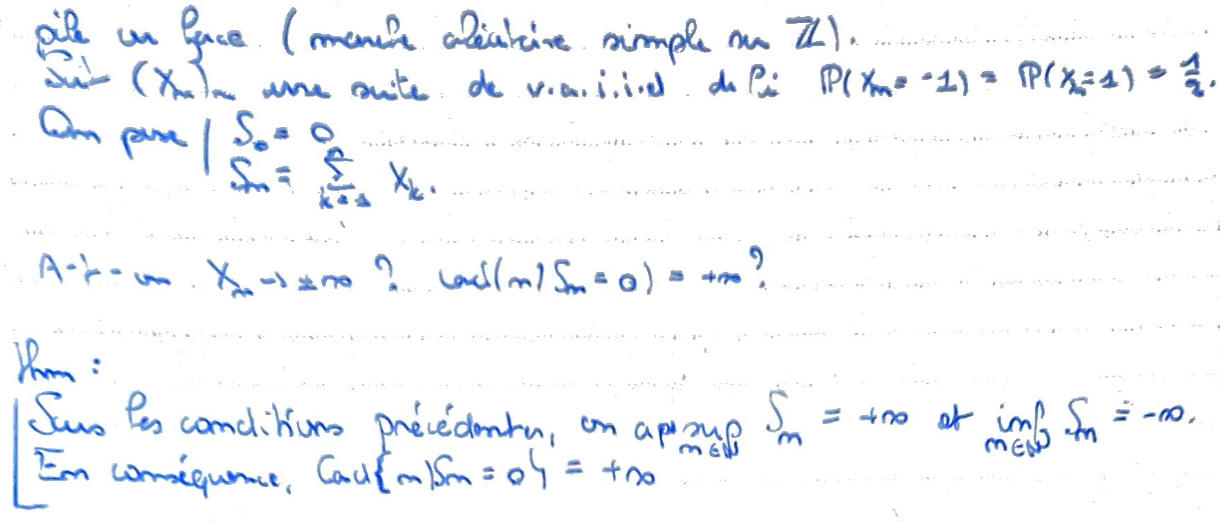 pile ou face (marche aléatoire simple sur ℤ).
Soit (Xₙ)ₙ une suite de v.a.i.i.d de loi ℙ(Xₙ = -1) = ℙ(Xₙ = 1) = 1/2.
On pose | S₀ = 0
Sₙ = Σ_{k=1}^{n} Xₖ.
A-t-on Xₙ → ±∞ ? Card(n | Sₙ = 0) = +∞ ?
Thm :
Sous les conditions précédentes, on a ps sup_{n∈ℕ} Sₙ = +∞ et inf_{n∈ℕ} Sₙ = -∞.
En conséquence, Card{n | Sₙ = 0} = +∞